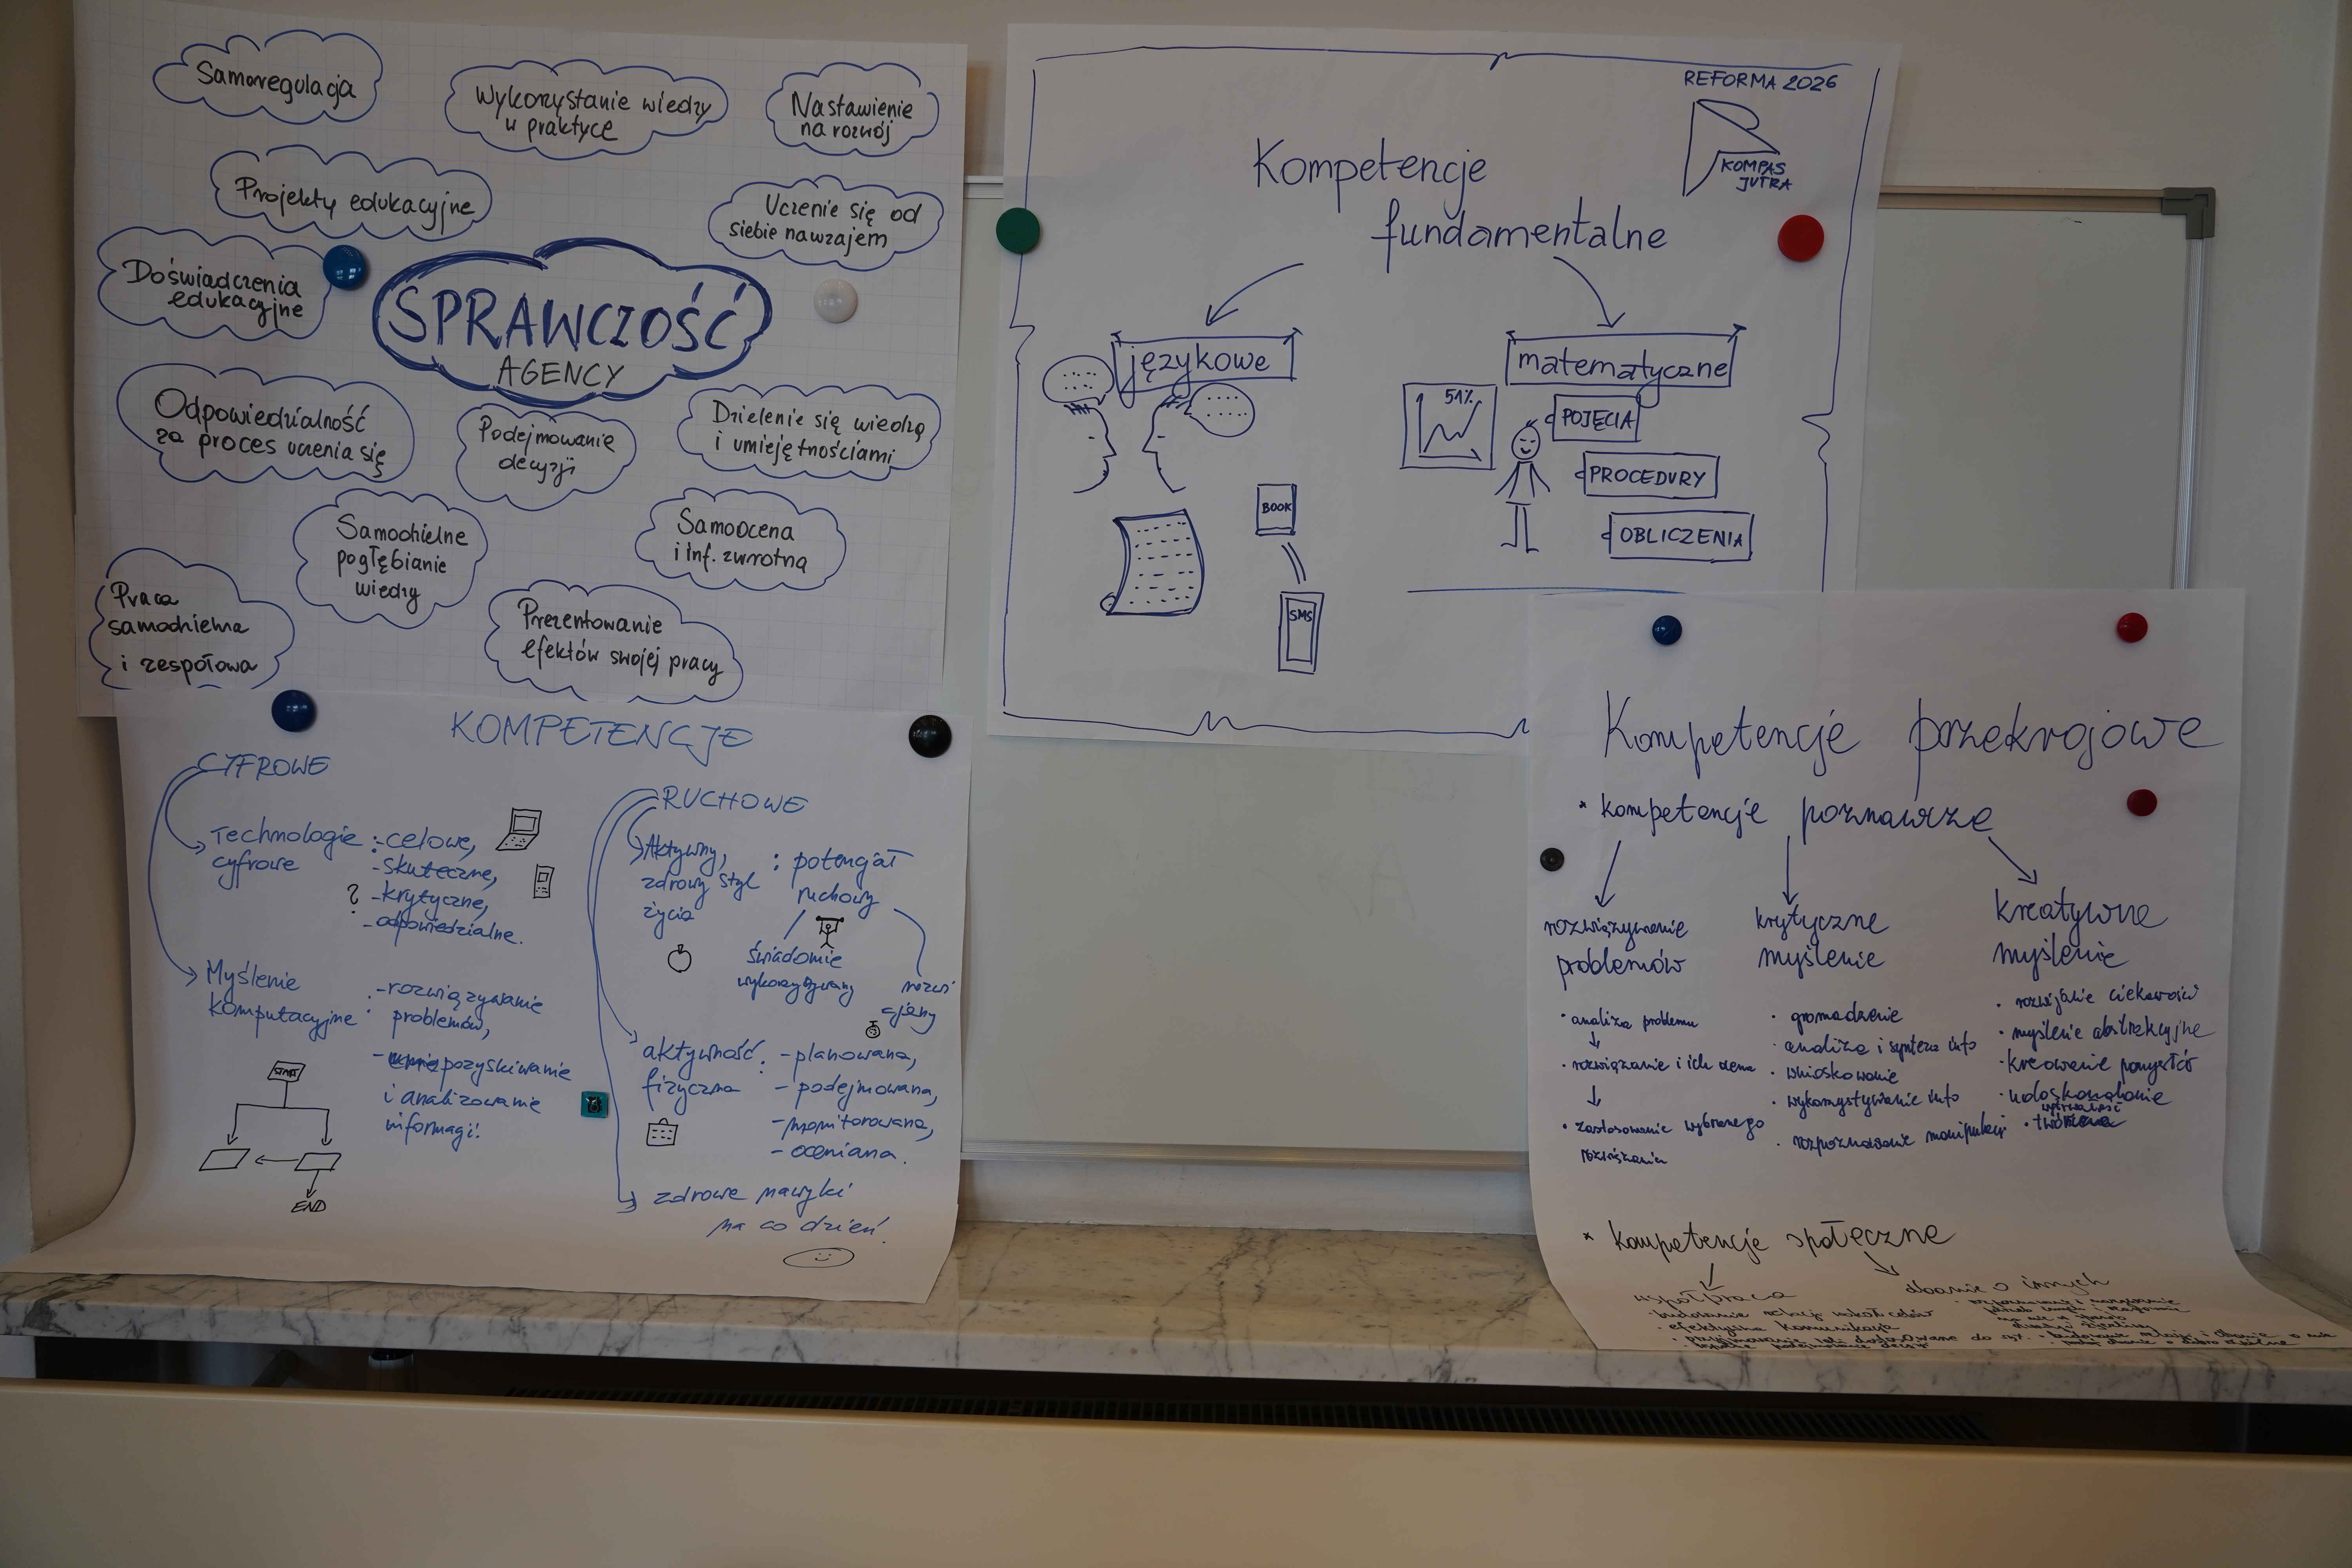 Samoregulacja
Wykorzystanie wiedzy
w praktyce
Nastawienie
na rozwój
Projekty edukacyjne
Uczenie się od
siebie nawzajem
Doświadczenia
edukacyjne
SPRAWCZOŚĆ
AGENCY
Odpowiedzialność
za proces uczenia się
Podejmowanie
decyzji
Dzielenie się wiedzą
i umiejętnościami
Samodzielne
pogłębianie
wiedzy
Samoocena
i inf. zwrotna
Praca
samodzielna
i zespołowa
Prezentowanie
efektów swojej pracy
REFORMA 2026
KOMPAS
JUTRA
Kompetencje
fundamentalne
językowe
matematyczne
51%
POJĘCIA
PROCEDURY
OBLICZENIA
BOOK
SMS
KOMPETENCJE
CYFROWE
Technologie
cyfrowe
: - celowe,
- skuteczne,
? - krytyczne,
- odpowiedzialne.
Myślenie
komputacyjne
: - rozwiązywanie
problemów,
- pozyskiwanie
i analizowanie
informacji.
START
END
RUCHOWE
Aktywny,
zdrowy styl
życia
: potencjał
ruchowy
świadomie
wykorzystywany
rozwi
jany
aktywność
fizyczna
: - planowana,
- podejmowana,
- monitorowana,
- oceniana.
zdrowe nawyki
na co dzień.
Kompetencje przekrojowe
* kompetencje poznawcze
rozwiązywanie
problemów
• analiza problemu
• rozwiązanie i ich ocena
• zastosowanie wybranego
rozwiązania
krytyczne
myślenie
• gromadzenie
• analiza i synteza info
• wnioskowanie
• wykorzystywanie info
• rozpoznawanie manipulacji
kreatywne
myślenie
• rozwijanie ciekawości
• myślenie abstrakcyjne
• kreowanie pomysłów
• udoskonalanie
* kompetencje społeczne
współpraca
• budowanie relacji
• efektywna komunikacja
dbanie o innych